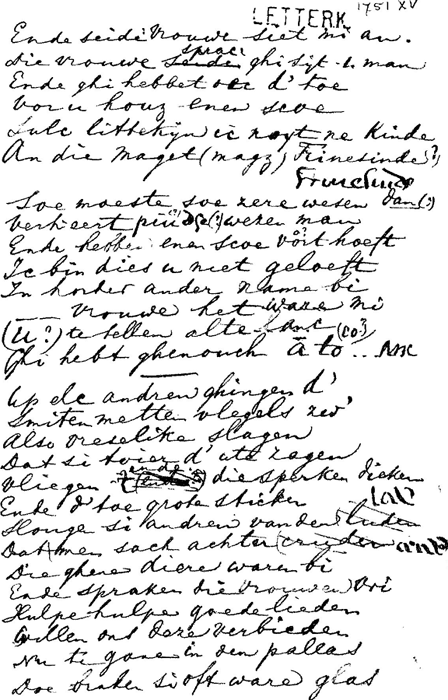 LETTERK. 1751 XV
Ende seide vrouwe siet mi an.
sprac
die vrouwe seide ghi sijt .i. man
Ende ghi hebbet oec d' toe
Vor u houz enen scoe
Sulc littekijn ic noyt ne kinde
An die maget (magz) Finesinde?)
Soe moeste soe zere wesen dan (:)
Verkeert wezen man
Ende hebben enen scoe vort hoeft
Ic bin dies u niet geloeft
In horder ander name bi
Vrouwe het ware mi
(U?) te tellen alte (co?)
Ghi hebt ghenouch a to ...
Up elc andren ghingen d'
Smiten metten vlegels zw'
Also vreselike slagen
Dat si tvier d' ute zagen
Vliegen die sperken dicken
Ende d' toe grote sticken
Slouge si andren van den
Dat men sach achter
Die ghene diere waren bi
Ende spraken die vrouwen vri
Hulpe hulpe goede lieden
Willen ons deze verbieden
Nu te gane in den pallas
Doe braken si oft ware glas